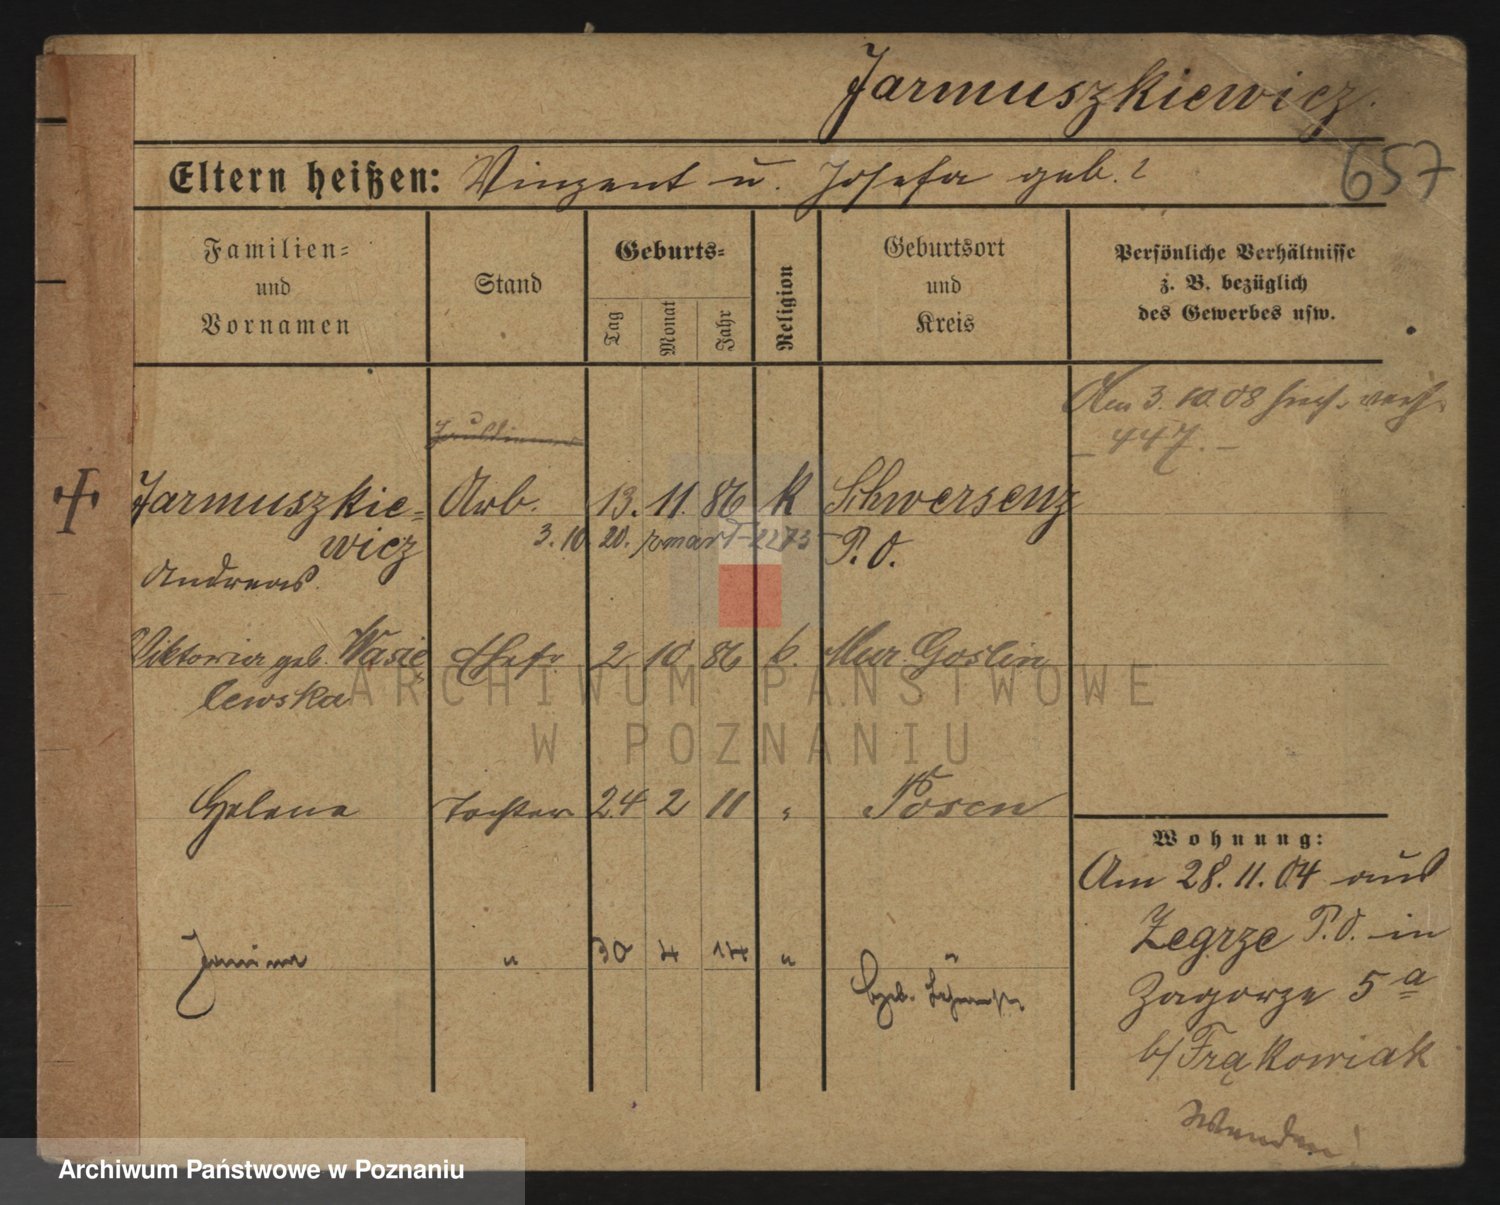 Jarmuszkiewicz.
657
Eltern heißen: Vinzent u. Josefa geb. ?
Familien= und Vornamen
Stand
Geburts=
Tag
Monat
Jahr
Religion
Geburtsort und Kreis
Persönliche Verhältnisse
z. B. bezüglich
des Gewerbes usw.
Am 3.10.08
447.
Jarmuszkie= Arb. 13. 11. 86 k Schwersenz
wicz 3.10 20. 2273 P. O.
Andreas.
Viktoria geb. Wasie Ehefr. 2 10 86 k. Mur. Goslin
lewska
Helena Tochter 24 2 11 " Posen
Wohnung:
Am 28.11.04 aus
Zegrze P.O. in
Zagorze 5 a
b/ Frąkowiak
Wenden!
Janina " 30 4 14 "
ARCHIWUM PAŃSTWOWE
W POZNANIU
Archiwum Państwowe w Poznaniu